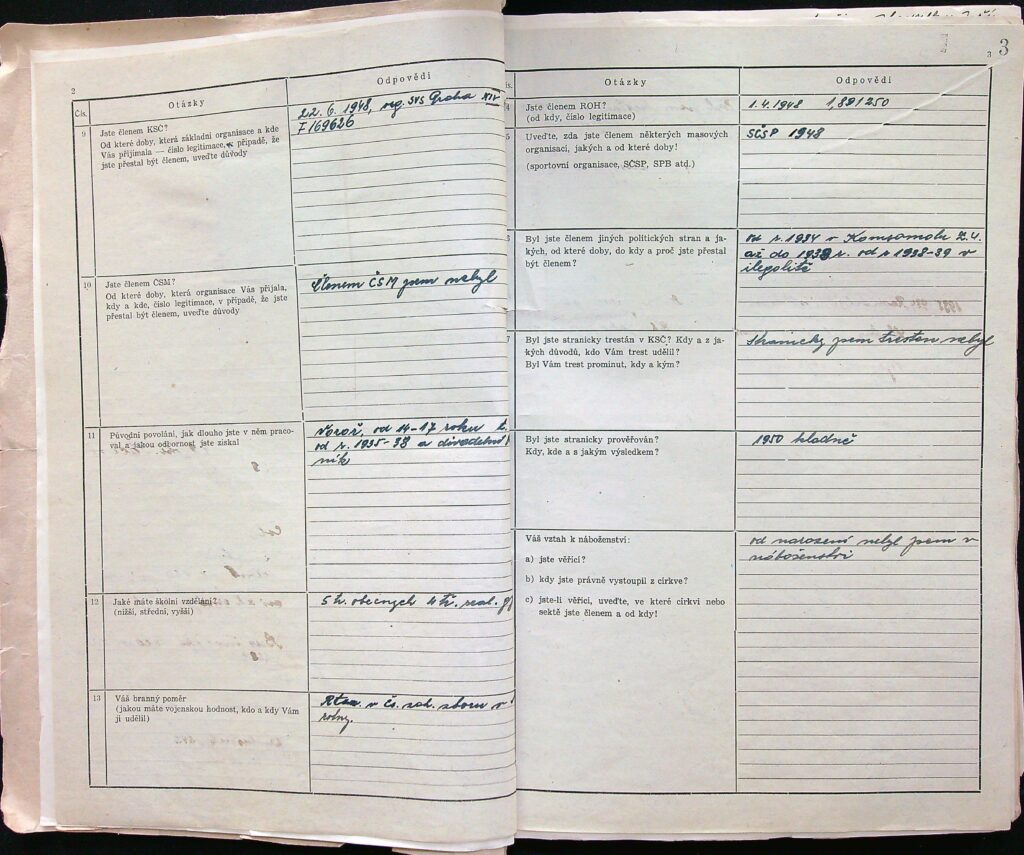 2
Čís.
Otázky
Odpovědi
9
Jste členem KSČ?
Od které doby, která základní organisace a kde
Vás přijímala — číslo legitimace, v případě, že
jste přestal být členem, uveďte důvody
22. 6. 1948, org. SVS Praha XIV
F 169626
10
Jste členem ČSM?
Od které doby, která organisace Vás přijala,
kdy a kde, číslo legitimace, v případě, že jste
přestal být členem, uveďte důvody
Členem ČSM jsem nebyl
11
Původní povolání, jak dlouho jste v něm praco-
val a jakou odbornost jste získal
od 14-17 roku
od r. 1935-38 a divadelní
ník
12
Jaké máte školní vzdělání?
(nižší, střední, vyšší)
5 tř. obecných 4 tř. real. g
13
Váš branný poměr
(jakou máte vojenskou hodnost, kdo a kdy Vám
ji udělil)
v čs. sboru v
3
3
Otázky
Odpovědi
4
Jste členem ROH?
(od kdy, číslo legitimace)
1.4.1948 1,891250
5
Uveďte, zda jste členem některých masových
organisací, jakých a od které doby!
(sportovní organisace, SČSP, SPB atd.)
SČSP 1948
Byl jste členem jiných politických stran a ja-
kých, od které doby, do kdy a proč jste přestal
být členem?
od r. 1934 v Komsomolu Z.U.
až do 1938 r. od r 1938-39 v
ilegalitě
7
Byl jste stranicky trestán v KSČ? Kdy a z ja-
kých důvodů, kdo Vám trest udělil?
Byl Vám trest prominut, kdy a kým?
Stranicky jsem trestan nebyl
Byl jste stranicky prověřován?
Kdy, kde a s jakým výsledkem?
1950 kladně
Váš vztah k náboženství:
a) jste věřící?
b) kdy jste právně vystoupil z církve?
c) jste-li věřící, uveďte, ve které církvi nebo
sektě jste členem a od kdy!
od narození nebyl jsem v
náboženství